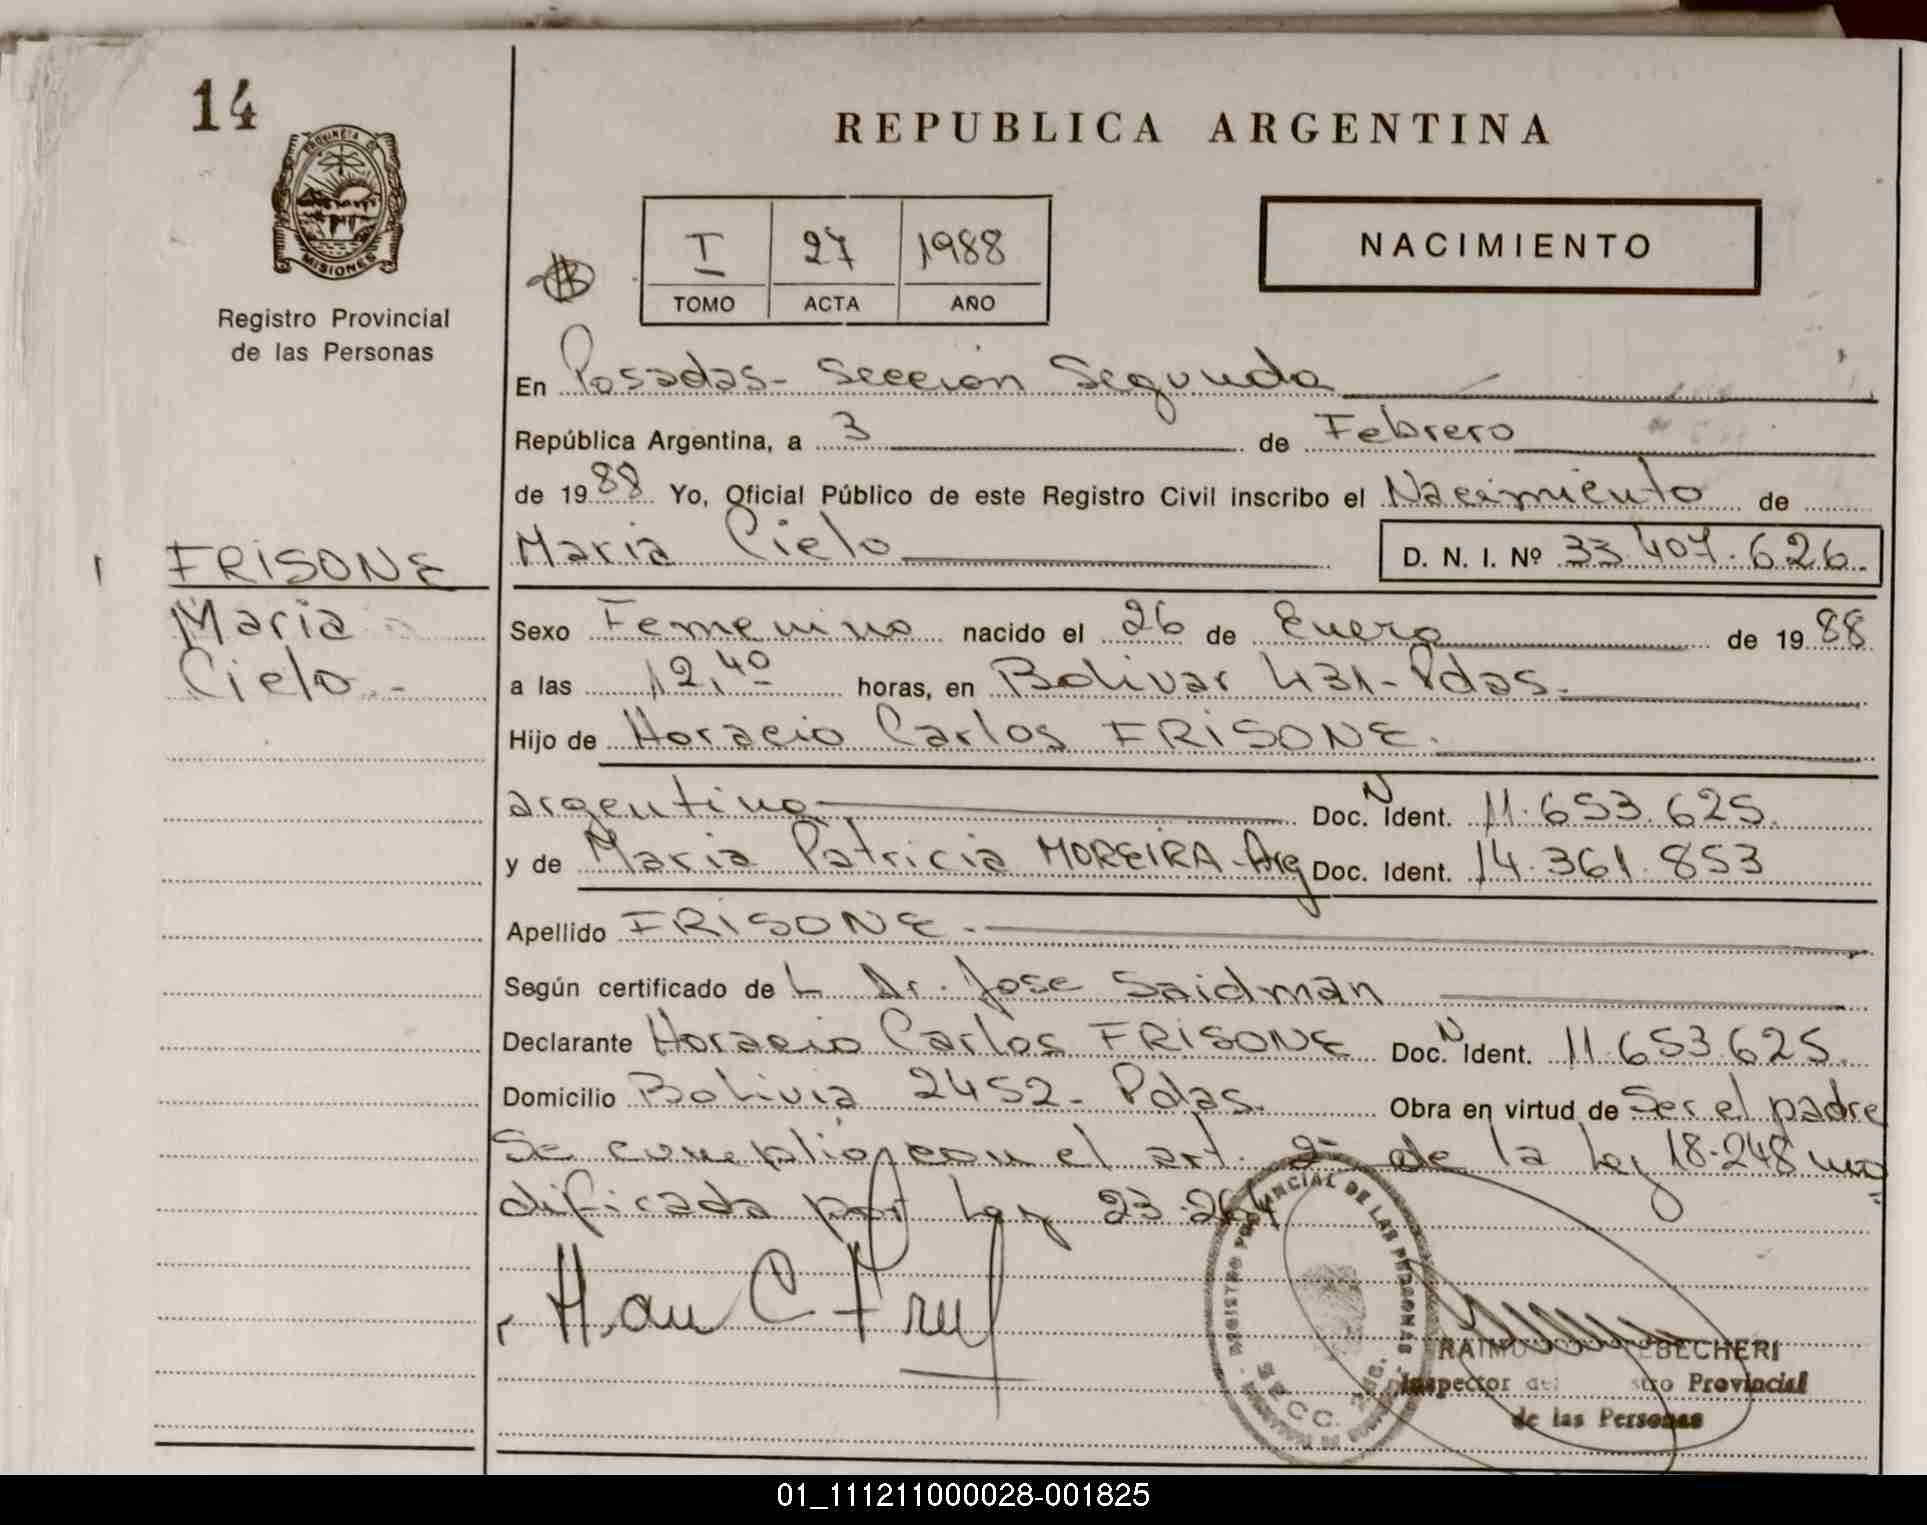 14
PROVINCIA DE
MISIONES
Registro Provincial
de las Personas
REPUBLICA ARGENTINA
I 27 1988
TOMO ACTA AÑO
NACIMIENTO
En Posadas - Sección Segunda
República Argentina, a 3 de Febrero
de 1988 Yo, Oficial Público de este Registro Civil inscribo el Nacimiento de
Maria Cielo D. N. I. Nº 33.407.626.
FRISONE
Maria
Cielo. -
Sexo Femenino nacido el 26 de Enero de 1988
a las 12,40 horas, en Bolivar 431 - Pdas.
Hijo de Horacio Carlos FRISONE.
argentino Doc. N Ident. 11.653.625.
y de Maria Patricia MOREIRA - Arg Doc. Ident. 14.361.853
Apellido FRISONE. -
Según certificado de L Dr. Jose Saidman
Declarante Horacio Carlos FRISONE Doc. N Ident. 11.653.625.
Domicilio Bolivia 2452 - Pdas. Obra en virtud de Ser el padre
Se cumplió con el art. 2º de la Ley 18.248 mo
dificada por Ley 23.264
REGISTRO PROVINCIAL DE LAS PERSONAS
SECC. 2da.
BECHERI
Inspector del Provincial
de las Personas
01_111211000028-001825